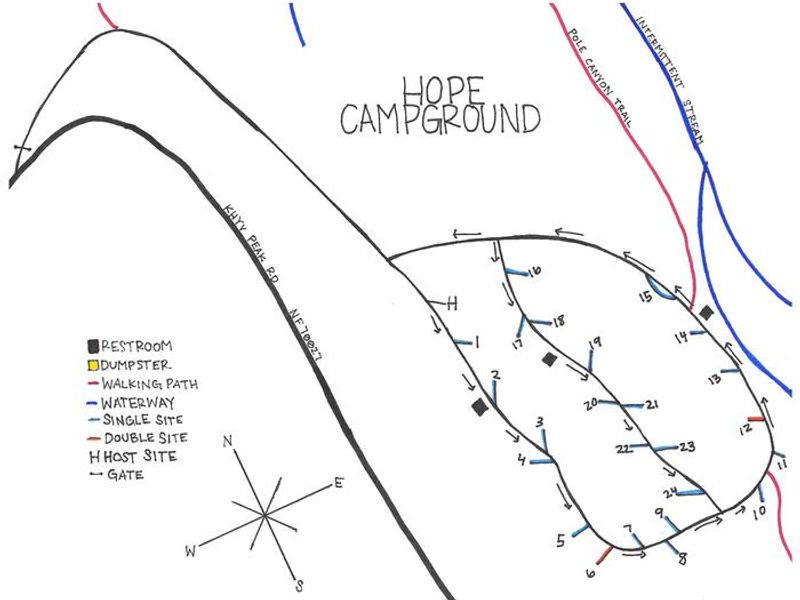 HOPE
CAMPGROUND
POLE CANYON TRAIL
INTERMITTENT STREAM
KHYV PEAK RD
NF 70027
H
1
2
3
4
5
6
7
8
9
10
11
12
13
14
15
16
17
18
19
20
21
22
23
24
RESTROOM
DUMPSTER
WALKING PATH
WATERWAY
SINGLE SITE
DOUBLE SITE
H HOST SITE
GATE
N
E
W
S